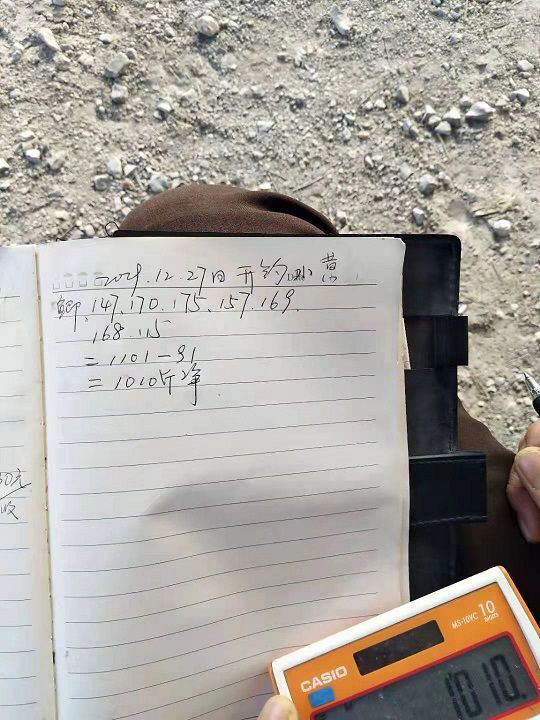 2021.12.27日开钓
鲫.147.170.175.157.169.
168.115
=1101-91
=1010斤净
0元
收
CASIO
MS-10VC
10
DIGITS
1010.